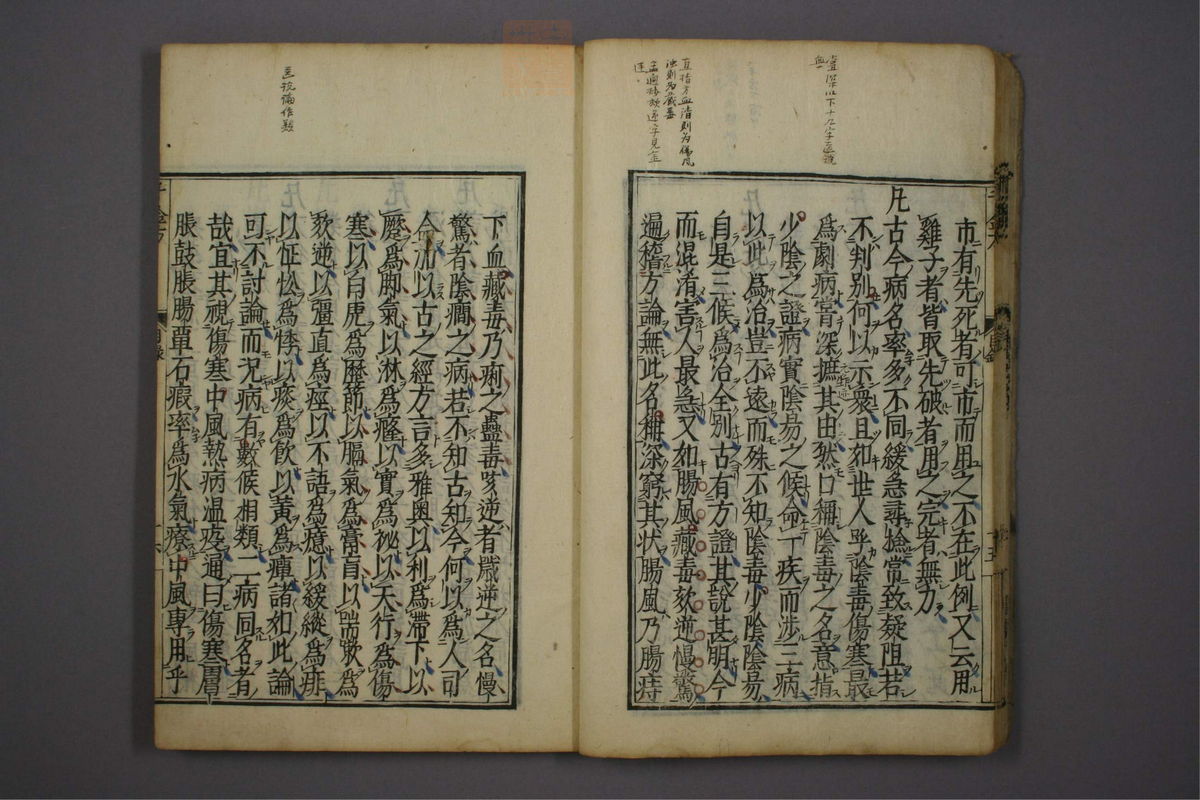 市有先死者可市而用之不在此例又云用
雞子者皆取先破者用之完者無力
凡古今病名率多不同緩急尋撿常致疑阻若
不判別何以示衆且如世人呼陰毒傷寒最
爲劇病嘗深摭其由然口稱陰毒之名意指
少陰之證病實陰昜之候命一疾而涉三病
以此爲治豈不遠而殊不知陰毒少陰陰昜
自是三候爲治全別古有方證其說甚明今
而混淆害人最急又如腸風藏毒欬逆慢驚
遍稽方論無此名稱深窮其状腸風乃腸痔
下血藏毒乃痢之蠱毒欬逆者噦逆之名慢
驚者陰癎之病若不知古知今何以爲人司
命加以古之經方言多雅奧以利爲滯下以
蹷爲脚氣以淋爲癃以實爲祕以天行爲傷
寒以白虎爲歷節以膈氣爲膏肓以喘欶爲
欬逆以彊直爲痙以不語爲癔以緩縱爲痱
以怔忪爲悸以痰爲飲以黃爲癉諸如此論
可不討論而况病有數候相類二病同名者
哉宜其視傷寒中風熱病温疫通曰傷寒膚
脹鼓脹腸覃石瘕率爲水氣療中風專用乎
目錄